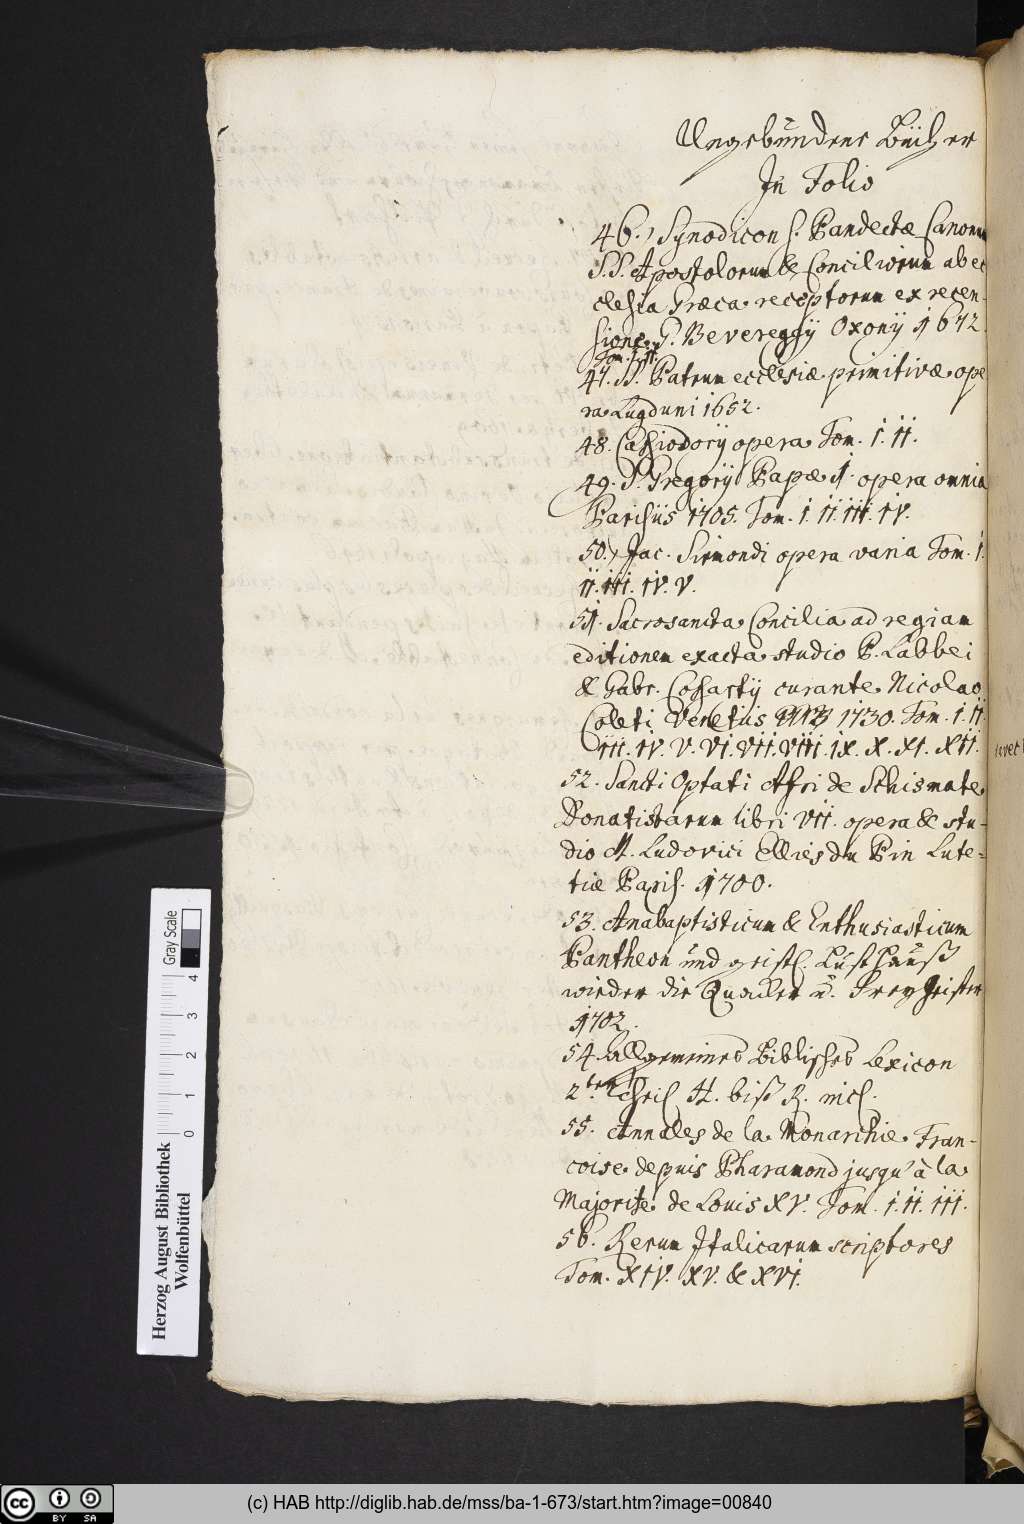 Ungebundene Bücher
In Folio
46., Synodicon s. Pandectæ Canonum
S.S. Apostolorum & Conciliorum ab ec
clesia Græca receptorum ex recen-
sione G. Bevereggij Oxonij 1672.
Tom. I. II.
47. SS. Patrum ecclesiæ primitivæ ope
ra Lugduni 1652.
48. Cassiodorij opera Tom. I. II.
49. S. Gregorij Papæ I. opera omnia
Parisiis 1705. Tom. I. II. III. IV.
50., Jac. Sirmondi opera varia Tom. I.
II. III. IV. V.
51. Sacrosancta Concilia ad regiam
editionem exacta studio P. Labbei
& Gabr. Cossartij curante Nicolao
Coleti Venetiis 1730. Tom. I. II.
III. IV. V. VI. VII. VIII. IX. X. XI. XII.
52. Sancti Optati Afri de Schismate
Donatistarum libri VII. opera & stu-
dio M. Ludovici Ellies du Pin Lute-
tiæ Paris. 1700.
53. Anabaptisticum & Enthusiasticum
Pantheon und geistl. Rüst Hauß
wieder die Quacker u. Frey Geister
1702.
54. Allgemeines Biblisches Lexicon
2.ter Theil H. biß R. incl.
55. Annales de la Monarchie Fran-
coise depuis Pharamond jusqu'à la
Majorite de Louis XV. Tom. I. II. III.
56. Rerum Italicarum scriptores
Tom. XIV. XV. & XVI.
Gray Scale
0 1 2 3 4
Herzog August Bibliothek
Wolfenbüttel
cc BY SA
(c) HAB http://diglib.hab.de/mss/ba-1-673/start.htm?image=00840